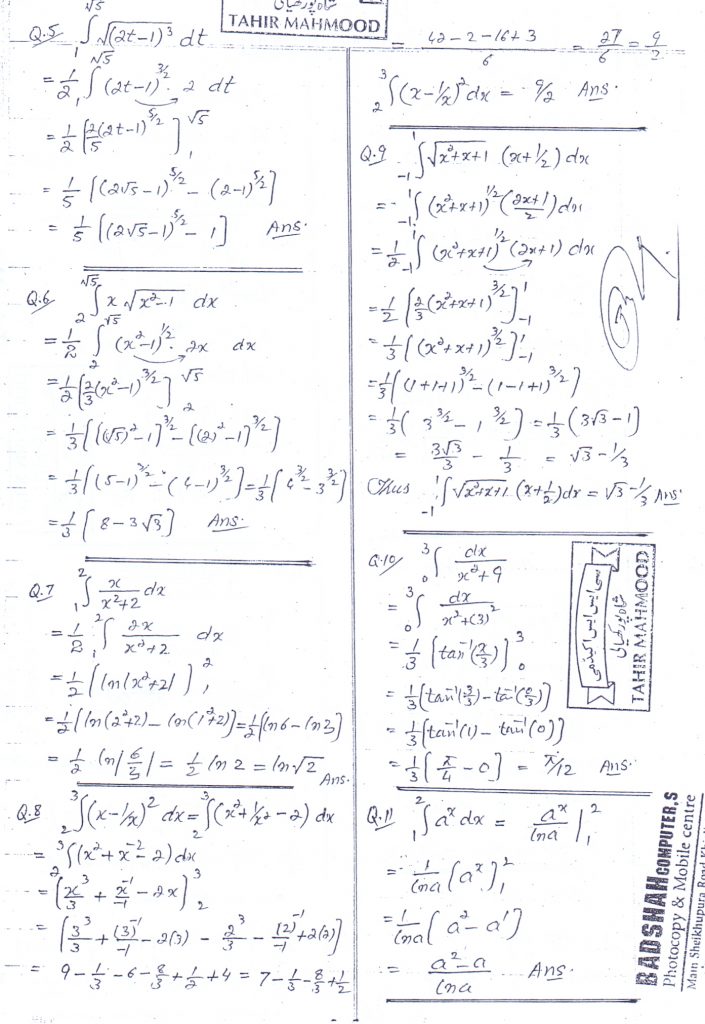 شاہ پور کھیالی
TAHIR MAHMOOD
Q.5 ₁∫^√5 √(2t-1)³ dt
= 1/2 ₁∫^√5 (2t-1)^3/2 · 2 dt
= 1/2 [2/5 (2t-1)^5/2]₁^√5
= 1/5 [(2√5-1)^5/2 - (2-1)^5/2]
= 1/5 [(2√5-1)^5/2 - 1] Ans.
Q.6 ₂∫^√5 x √x²-1 dx
= 1/2 ₂∫^√5 (x²-1)^1/2 · 2x dx
= 1/2 [2/3 (x²-1)^3/2]₂^√5
= 1/3 [((√5)²-1)^3/2 - ((2)²-1)^3/2]
= 1/3 [(5-1)^3/2 - (4-1)^3/2] = 1/3 [4^3/2 - 3^3/2]
= 1/3 [8-3√3] Ans.
Q.7 ₁∫² x/(x²+2) dx
= 1/2 ₁∫² 2x/(x²+2) dx
= 1/2 [ln|x²+2|]₁²
= 1/2 [ln(2²+2) - ln(1²+2)] = 1/2 [ln6 - ln3]
= 1/2 ln|6/3| = 1/2 ln2 = ln√2 Ans.
Q.8 ₂∫³ (x-1/x)² dx = ₂∫³ (x²+1/x²-2) dx
= ₂∫³ (x²+x⁻²-2) dx
= [x³/3 + x⁻¹/-1 - 2x]₂³
= [3³/3 + (3)⁻¹/-1 - 2(3) - 2³/3 - (2)⁻¹/-1 + 2(2)]
= 9 - 1/3 - 6 - 8/3 + 1/2 + 4 = 7 - 1/3 - 8/3 + 1/2
= (42-2-16+3)/6 = 27/6 = 9/2
₂∫³ (x-1/x)² dx = 9/2 Ans.
Q.9 ₋₁∫¹ √x²+x+1 (x+1/2) dx
= ₋₁∫¹ (x²+x+1)^1/2 ((2x+1)/2) dx
= 1/2 ₋₁∫¹ (x²+x+1)^1/2 (2x+1) dx
= 1/2 [2/3 (x²+x+1)^3/2]₋₁¹
= 1/3 [(x²+x+1)^3/2]₋₁¹
= 1/3 [(1+1+1)^3/2 - (1-1+1)^3/2]
= 1/3 [3^3/2 - 1^3/2] = 1/3 (3√3-1)
= 3√3/3 - 1/3 = √3 - 1/3
Thus ₋₁∫¹ √x²+x+1 (x+1/2) dx = √3 - 1/3 Ans.
Q.10 ₀∫³ dx/(x²+9)
= ₀∫³ dx/(x²+(3)²)
= 1/3 [tan⁻¹(x/3)]₀³
= 1/3 [tan⁻¹(3/3) - tan⁻¹(0/3)]
= 1/3 [tan⁻¹(1) - tan⁻¹(0)]
= 1/3 [π/4 - 0] = π/12 Ans.
Q.11 ₁∫² aˣ dx = aˣ/lna |₁²
= 1/lna [aˣ]₁²
= 1/lna [a² - a¹]
= (a²-a)/lna Ans.
سی ایس ایس اکیڈمی
شاہ پور کھیالی
TAHIR MAHMOOD
BADSHAH COMPUTER,S
Photocopy & Mobile centre
Main Sheikhupura Road